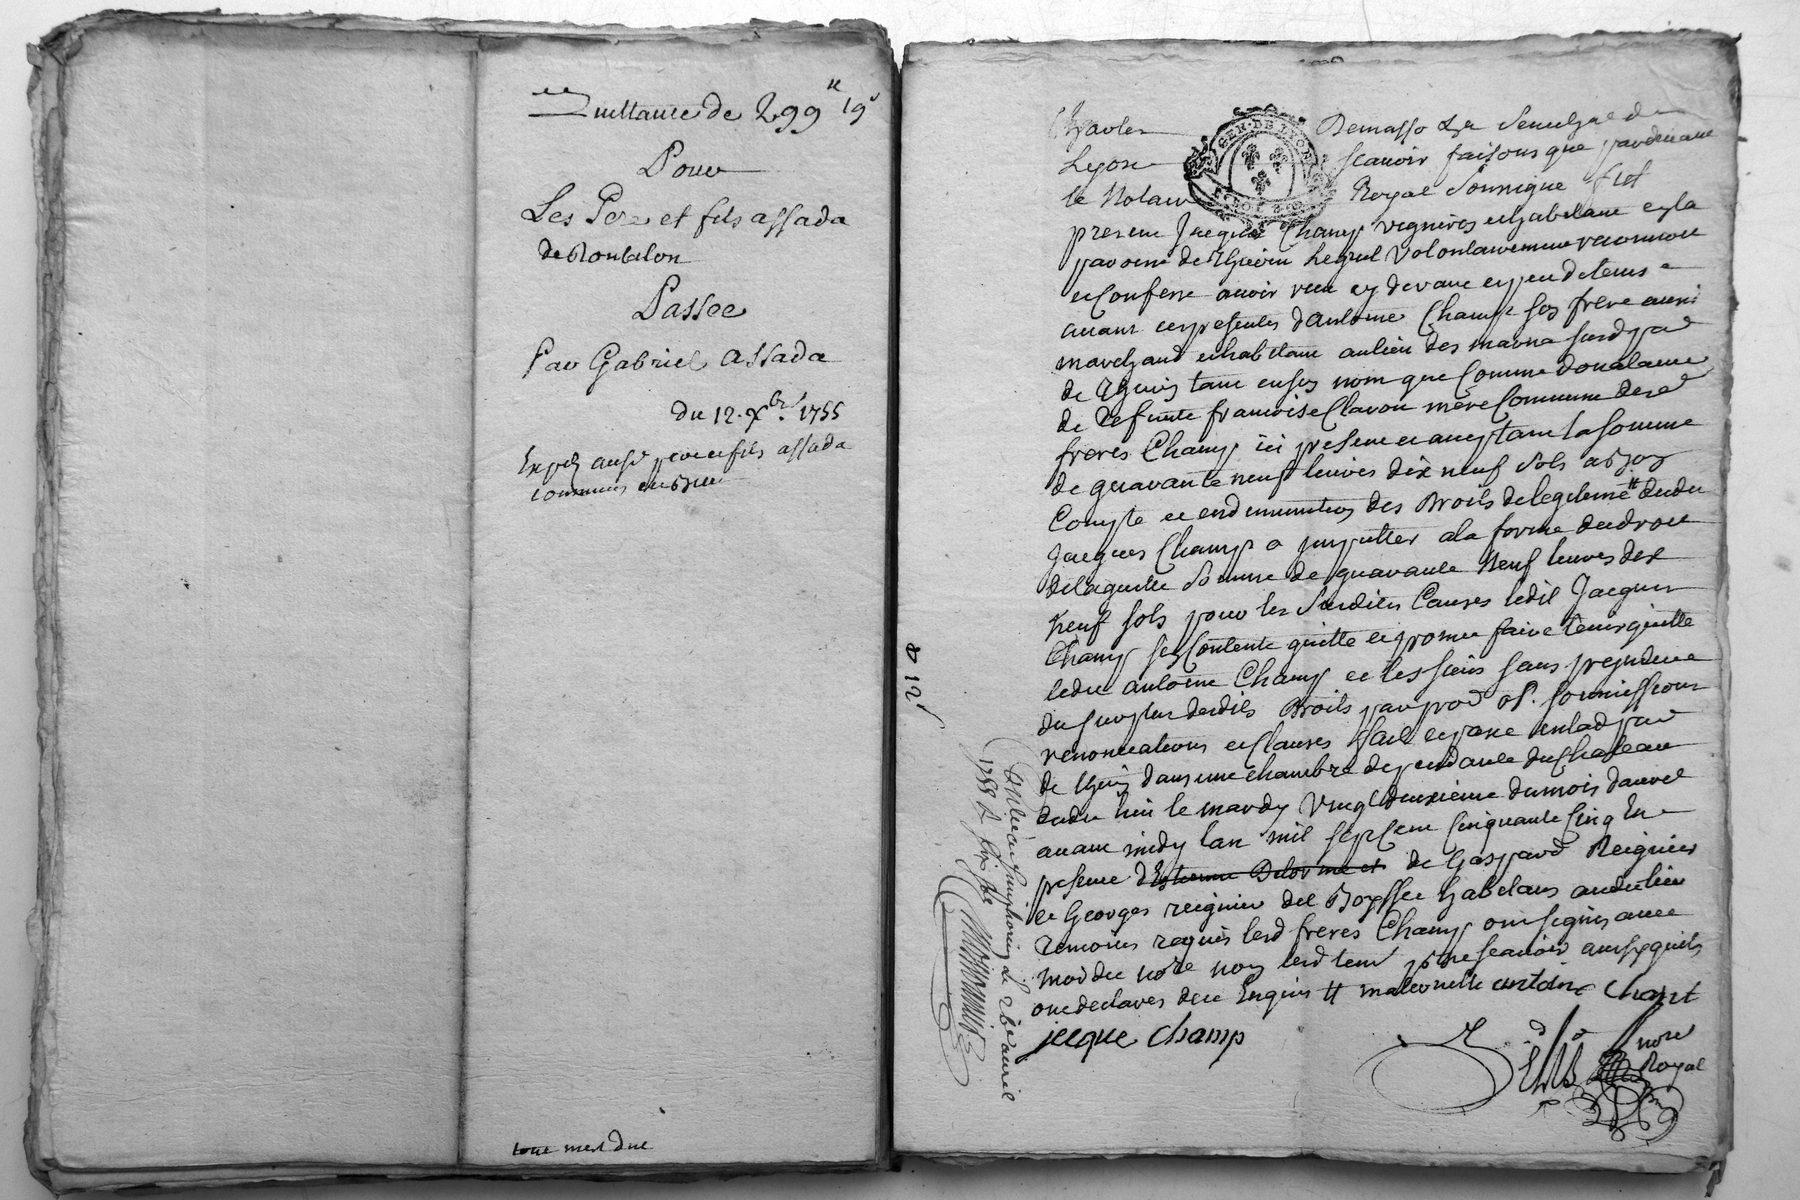 Quittance de 299ᵗᵗ 19ˢ
Pour
Les Pere et fils assada
de Rontalon
Passee
Par Gabriel assada
du 12. Xbre. 1755
Exped ausd pere et fils assada
tout mest due
& 12ˢ
Charles Demasso Sen. de
Lyon scavoir faisons que pardevant
le Notaire Royal soussigne fut
GEN. DE LYON
present Jacques Champ vigneron et habitant en la
paroisse de Thurin lequel volontairement reconnoit
et confesse avoir receu cy devant et peu de tems
avant ces presentes d'antoine Champ son frere aussi
marchand et habitant au lieu des mavna susd par
de Thurin tant en son nom que comme donataire
de deffunte francoise Clavon mere Commune desd
freres Champ ici present et acceptant la somme
de quarante neuf livres dix neuf sols a bon
Compte et en diminution des Droits de legitime # dudit
Jacques Champ a imputter a la forme du droit
de laquelle somme de quarante Neuf livres dix
Neuf sols pour les susdites Causes ledit Jacques
Champ se contente quitte et promet faire tenir quitte
ledit antoine Champ et les siens sans prejudice
du surplus desdits Droits par prod ob. soumissions
renonciations et clauses fait et passe en lad par
de thurin dans une chambre dependante du Chateau
dudit lieu le mardy vingt deuxieme du mois davril
avant midy lan mil sept cent cinquante cinq En
presence d'Estienne Delorme et de Gaspard Reignier
et Georges reignier del Boysse habitans audit lieu
temoins requis lesd freres Champ ont signes avec
moi dit note non lesd tem pr ne scavoir ainsy quils
ont declares de ce Enquis # maternelle antoine Chanpt
jacque Champ
note
Royal
Controllé à St simphorien le 26 avril
1755 R six sols